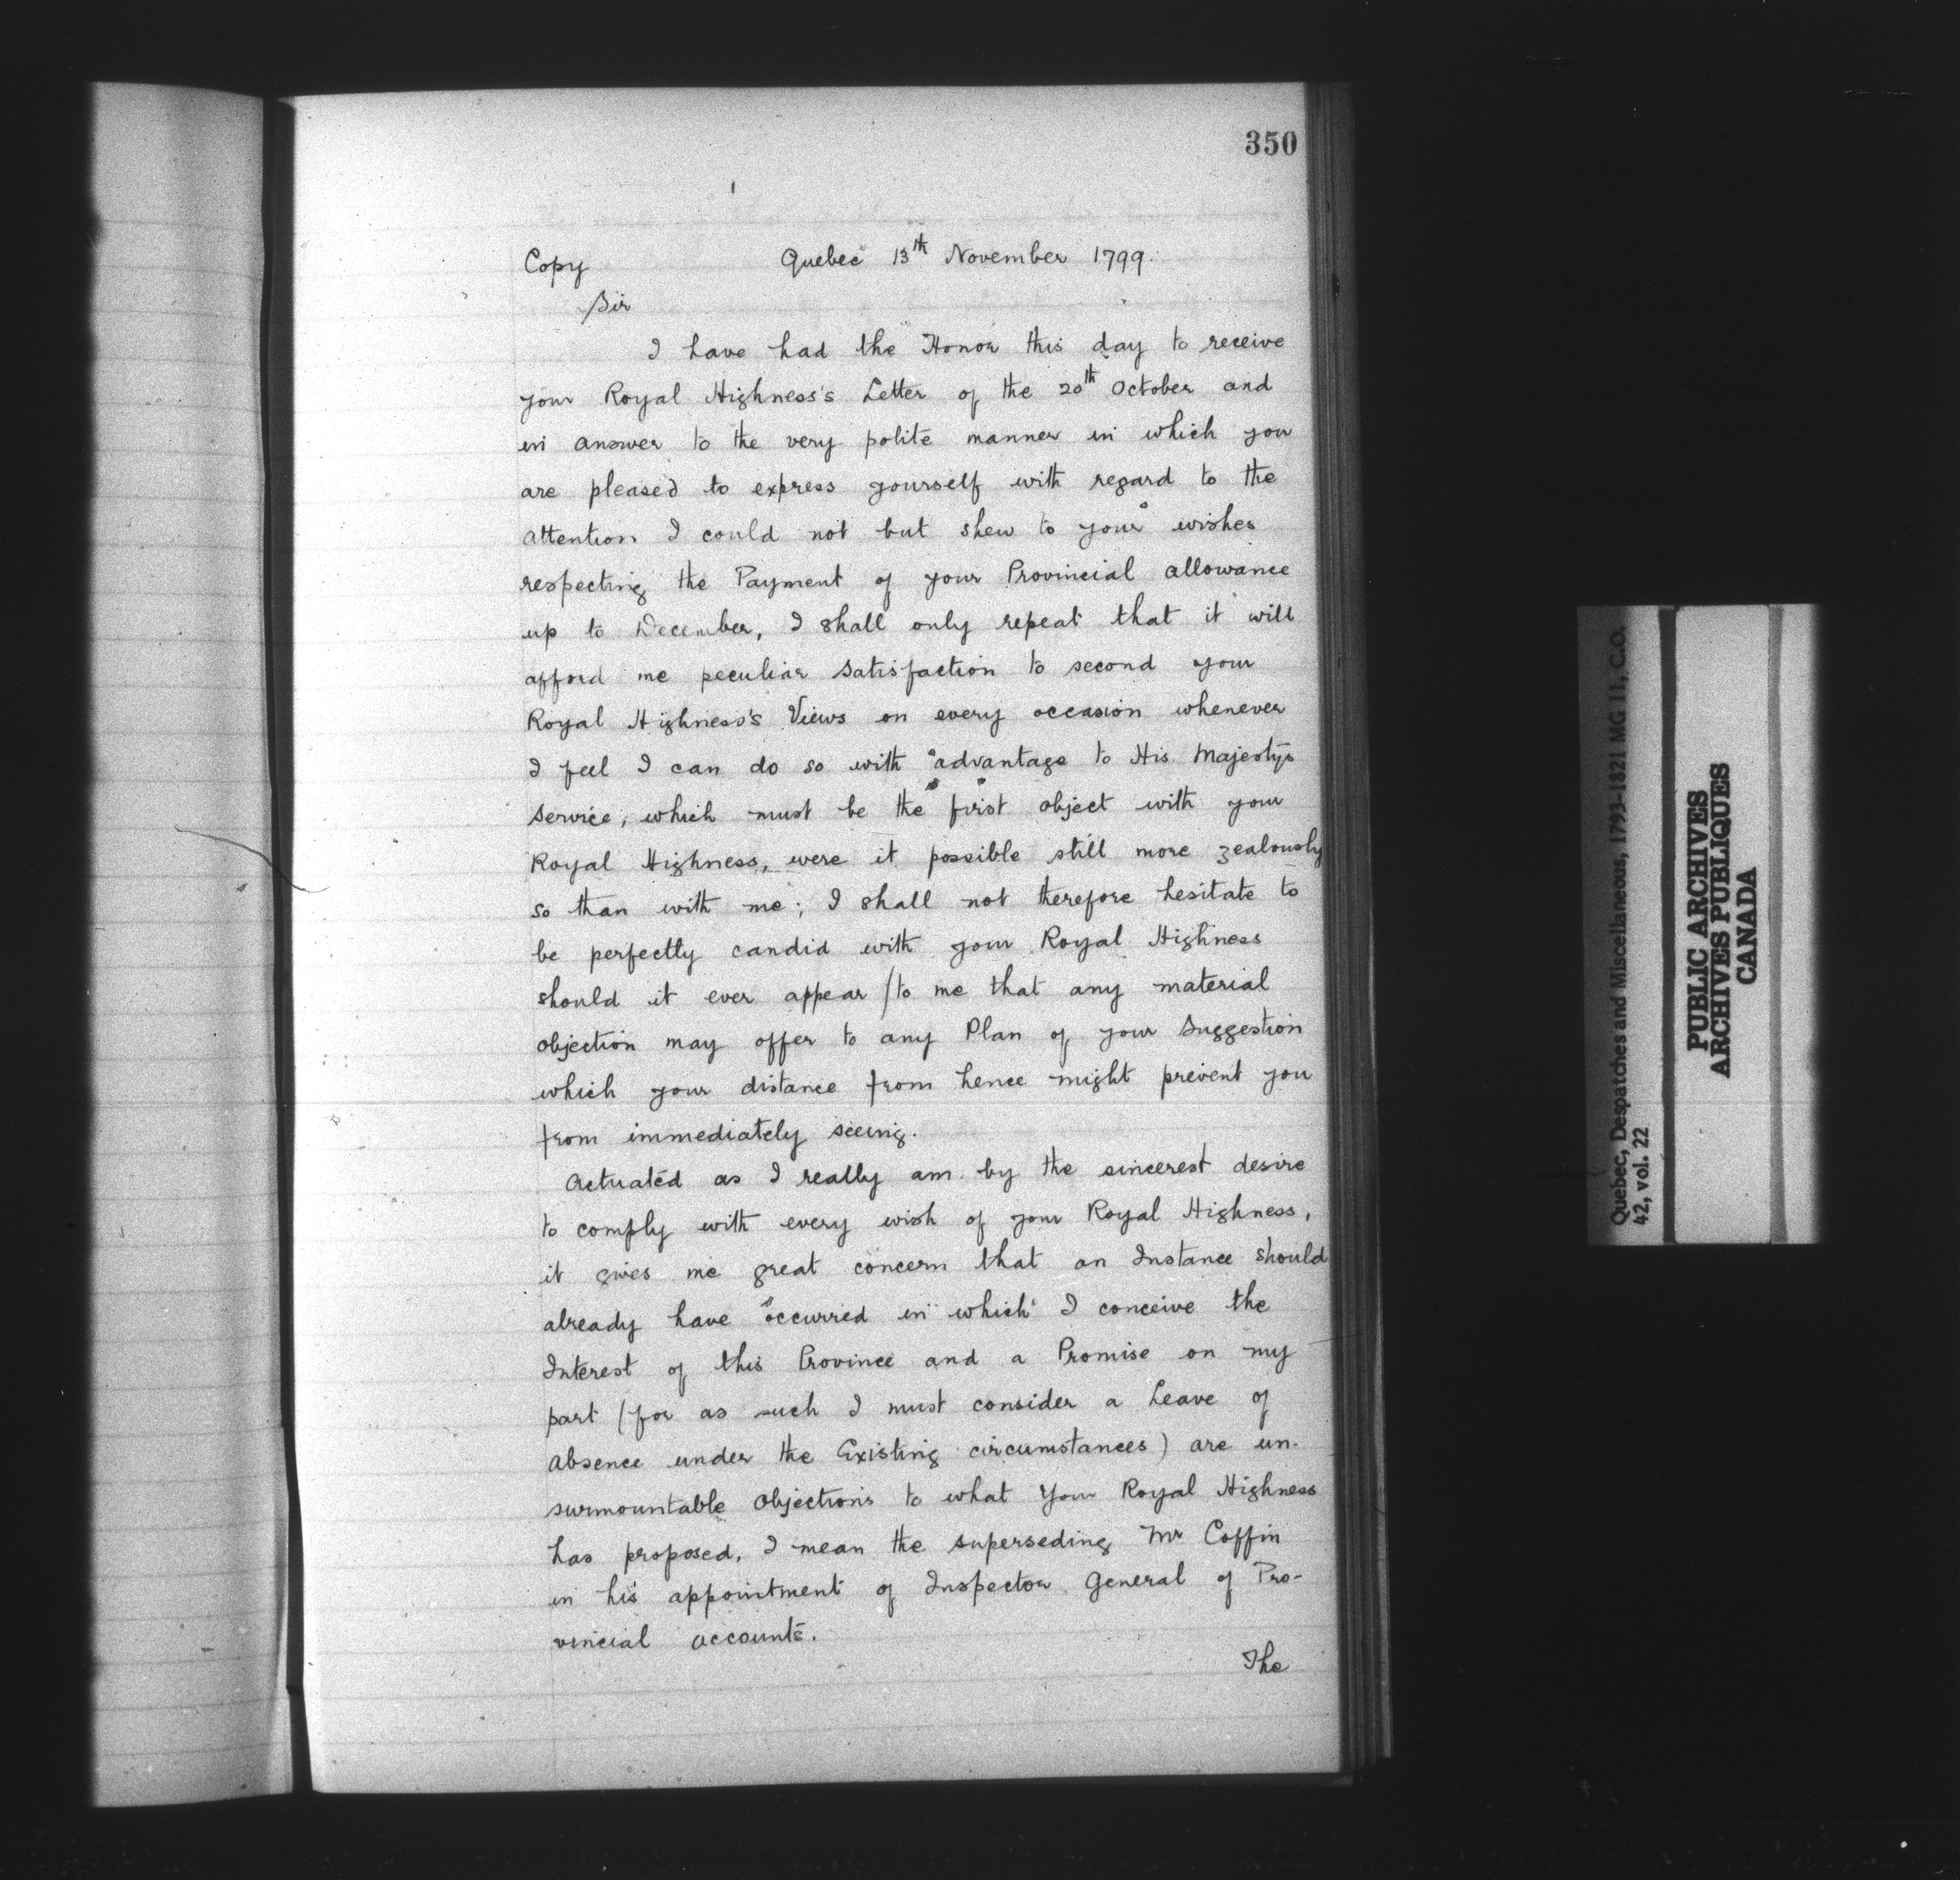 350
Copy Quebec 13th November 1799.
Sir
I have had the Honor this day to receive
your Royal Highness's Letter of the 20th October and
in answer to the very polite manner in which you
are pleased to express yourself with regard to the
attention I could not but shew to your wishes
respecting the Payment of your Provincial allowance
up to December, I shall only repeat that it will
afford me peculiar satisfaction to second your
Royal Highness's Views on every occasion whenever
I feel I can do so with advantage to His Majestys
service, which must be the first object with your
Royal Highness, were it possible still more zealously
so than with me; I shall not therefore hesitate to
be perfectly candid with your Royal Highness
should it ever appear to me that any material
objection may offer to any Plan of your Suggestion
which your distance from hence might prevent you
from immediately seeing.
Actuated as I really am by the sincerest desire
to comply with every wish of your Royal Highness,
it gives me great concern that an Instance should
already have occurred in which I conceive the
Interest of this Province and a Promise on my
part (for as such I must consider a Leave of
absence under the Existing circumstances) are un-
surmountable Objections to what Your Royal Highness
has proposed, I mean the superseding Mr Coffin
in his appointment of Inspector General of Pro-
vincial accounts.
The
Quebec, Despatches and Miscellaneous, 1793-1821 MG 11, C.O.
42, vol. 22
PUBLIC ARCHIVES
ARCHIVES PUBLIQUES
CANADA